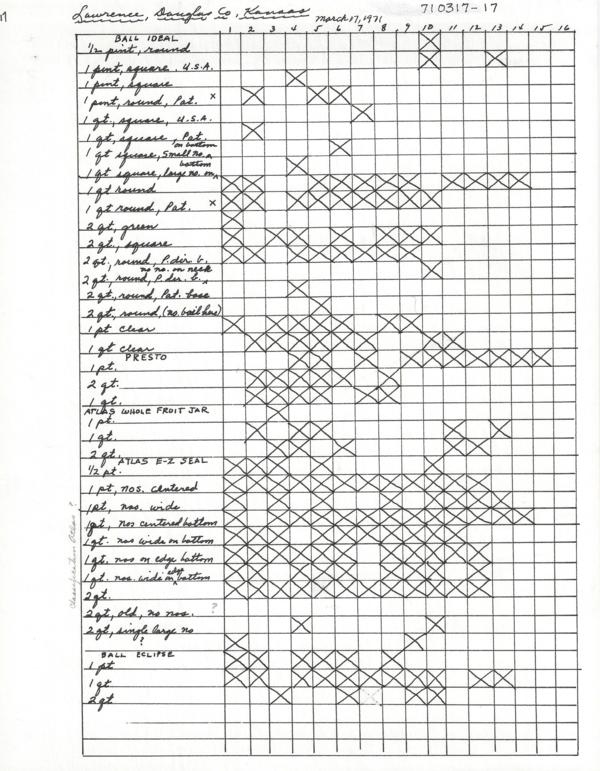 Lawrence, Douglas Co, Kansas
March 17, 1971
710317-17
1 2 3 4 5 6 7 8 9 10 11 12 13 14 15 16
BALL IDEAL
1/2 pint, round
1 pint, square, U.S.A.
1 pint, square
1 pint, round, Pat. x
1 qt, square, U.S.A.
1 qt, square, Pat.
1 qt square, small no. on bottom
1 qt square, large no. on bottom
1 qt round
1 qt round, Pat. x
2 qt, green
2 qt, square
2 qt, round, P. dir. b.
2 qt, round, P. dir. b. no no. on neck
2 qt, round, Pat. base
2 qt, round, (no. bail here)
1 pt clear
1 qt clear
PRESTO
1 pt.
2 qt.
1 qt.
ATLAS WHOLE FRUIT JAR
1 pt.
1 qt.
2 qt.
ATLAS E-Z SEAL
1/2 pt.
1 pt, nos. centered
1 pt, nos. wide
1 qt, nos centered bottom
1 qt. nos wide on bottom
1 qt. nos on edge bottom
1 qt. nos. wide on edge bottom
2 qt.
2 qt, old, no nos. ?
2 qt, single large no
?
BALL ECLIPSE
1 pt
1 qt
2 qt